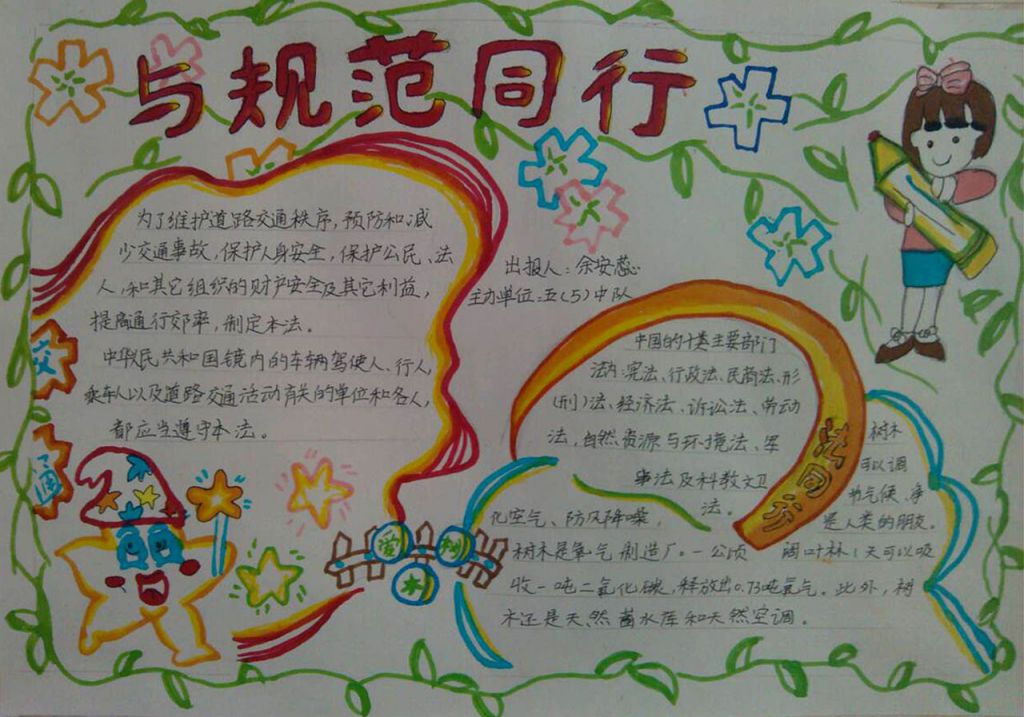 与规范同行
为了维护道路交通秩序,预防和减
少交通事故,保护人身安全,保护公民、法
人,和其它组织的财产安全及其它利益,
提高通行效率,制定本法。
中华民共和国镜内的车辆驾使人、行人,
乘车人以及道路交通活动有关的单位和各人,
都应当遵守本法。
交
通
出报人:余安蕊
主办单位:五(5)中队
中国的十类主要部门
法为:宪法、行政法、民商法、形
(刑)法、经济法、诉讼法、劳动
法,自然资源与环境法、军
事法及科教文卫
法。
法同行
爱树木
树木
可以调
节气候、净
化空气、防风降噪,是人类的朋友。
树木是氧气制造厂。一公顷阔叶林1天可以吸
收一吨二氧化碳,释放出0.73吨氧气。此外,树
木还是天然蓄水库和天然空调。